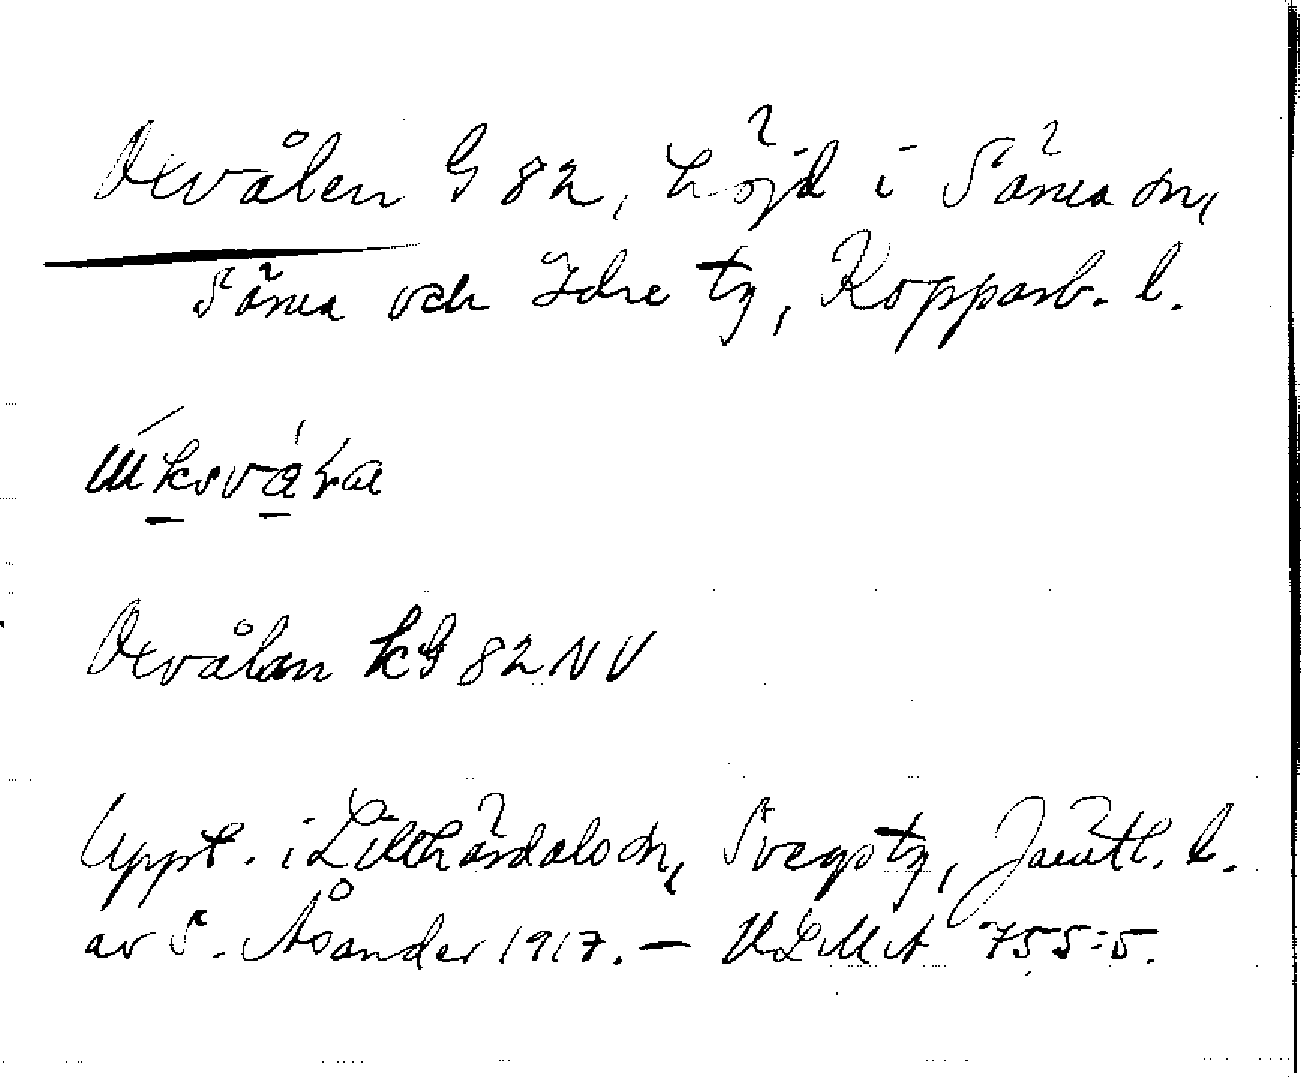 Oxvålen G 82, höjd i Särna sn,
Särna och Idre tg, Kopparb. l.
Oxvålan kG 82 NV
Uppt. i Lillhärdals sn, Svegs tg, Jämtl. l.
av S. Åsander 1917. — ULMA 755:5.